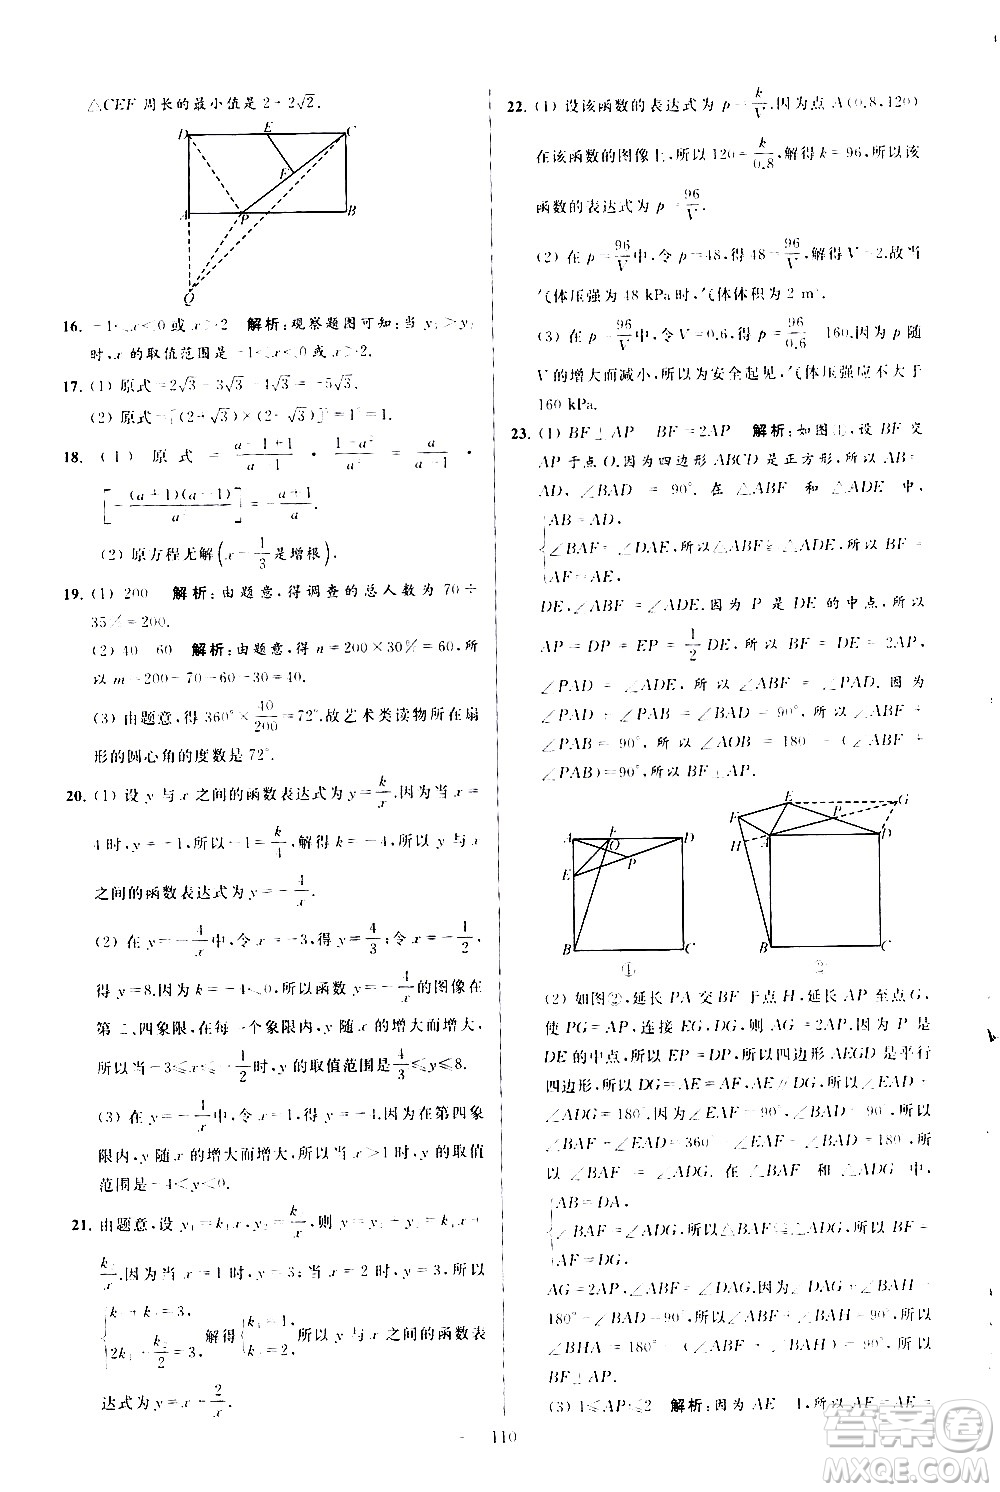 △CEF 周长的最小值是 2+2√2.
D E C
F
A P B
Q
16. -1<x<0 或 x>2 解析:观察题图可知:当 y₁>y₂
时,x 的取值范围是 -1<x<0 或 x>2.
17. (1) 原式=2√3-3√3-4√3=-5√3.
(2) 原式=[(2+√3)×(2-√3)]
18. (1) 原式 = (a-1+1)/(a-1) · (1-a²)/a² = a/(a-1) ·
[-(a+1)(a-1)/a²] = -(a+1)/a.
(2) 原方程无解(x=1/3是增根).
19. (1) 200 解析:由题意,得调查的总人数为 70÷
35%=200.
(2) 40 60 解析:由题意,得 n=200×30%=60,所
以 m=200-70-60-30=40.
(3) 由题意,得 360°×40/200=72°.故艺术类读物所在扇
形的圆心角的度数是 72°.
20. (1) 设 y 与 x 之间的函数表达式为 y=k/x.因为当 x=
4 时,y=-1,所以-1=k/4.所以 k=-4,所以 y 与 x
之间的函数表达式为 y=-4/x.
(2) 在 y=-4/x中,令 x=-3,得 y=4/3;令 x=-1/2,
得 y=8.因为-4<0,所以 y=-4/x的图像在
第二、四象限,在每一个象限内,y 随 x 的增大而增大,
所以当-3≤x≤-1/2时,y 的取值范围是4/3≤y≤8.
(3) 在 y=-4/x中,令 x=1,得 y=-4.因为在第四象
限内,y 随 x 的增大而增大,所以当 x>1 时,y 的取值
范围是-4<y<0.
21. 由题意,设 y₁=k₁x,y₂=k₂/x,则 y=k₁x+
k₂/x.因为当 x=1 时,y=3,当 x=2 时,y=3,所以
{k₁+k₂=3, 2k₁+k₂/2=3, 解得{k₁=1, k₂=2. 所以 y 与 x 之间的函数表
达式为 y=x+2/x.
22. (1) 设该函数的表达式为 p=k/V.因为点 A(0.8,120)
在该函数的图像上,所以 120=k/0.8,解得 k=96,所以该
函数的表达式为 p=96/V.
(2) 在 p=96/V中,令 p=48,得 48=96/V,所以 V=2.故当
气体压强为 48 kPa 时,气体体积为 2 m³.
(3) 在 p=96/V中,令 V=0.6,得 p=96/0.6=160.因为 p 随
V 的增大而减小,所以为安全起见,气体压强应不大于
160 kPa.
23. (1) BF⊥AP BF=2AP 解析:如图①,设 BF 交
AP 于点 O.因为四边形 ABCD 是正方形,所以 AB=
AD,∠BAD = 90°. 在 △ABF 和 △ADE 中,
{AB=AD, ∠BAF=∠DAE, AF=AE, 所以△ABF≌△ADE.所以 BF=
DE,∠ABF=∠ADE.因为 P 是 DE 的中点,所以
AP = DP = EP = 1/2 DE. 所以 BF = 2AP,
∠PAD = ∠ADE. 所以 ∠ABF = ∠PAD. 因为
∠PAD + ∠PAB = ∠BAD = 90°, 所以 ∠ABF +
∠PAB = 90°, 所以 ∠AOB = 180° - (∠ABF +
∠PAB)=90°,所以 BF⊥AP.
A F D
O
E P
B C
①
E G
F P
H A D
B C
②
(2) 如图②,延长 PA 交 BF 于点 H,延长 AP 至点 G,
使 PG=AP,连接 EG、DG,则 AG=2AP.因为 P 是
DE 的中点,所以 EP=DP,所以四边形 AEGD 是平行
四边形,所以 DG=AE=AF,AE∥DG,所以∠EAD+
∠ADG=180°.因为∠EAF=90°,∠BAD=90°,所以
∠BAF+∠EAD=360°-∠EAF-∠BAD=180°,所
以 ∠BAF = ∠ADG. 在 △BAF 和 △ADG 中,
{AB=DA, ∠BAF=∠ADG, AF=DG, 所以△BAF≌△ADG,所以 BF=
AG=2AP,∠ABF=∠DAG.因为∠DAG+∠BAH=
180°-∠BAD=90°,所以∠ABF+∠BAH=90°,所以
∠BHA=180°-(∠ABF+∠BAH)=90°,所以
BF⊥AP.
(3) 1≤AP≤2 解析:因为 AE = 1,所以 AF = AE =
110
答案圈
MXQE.COM